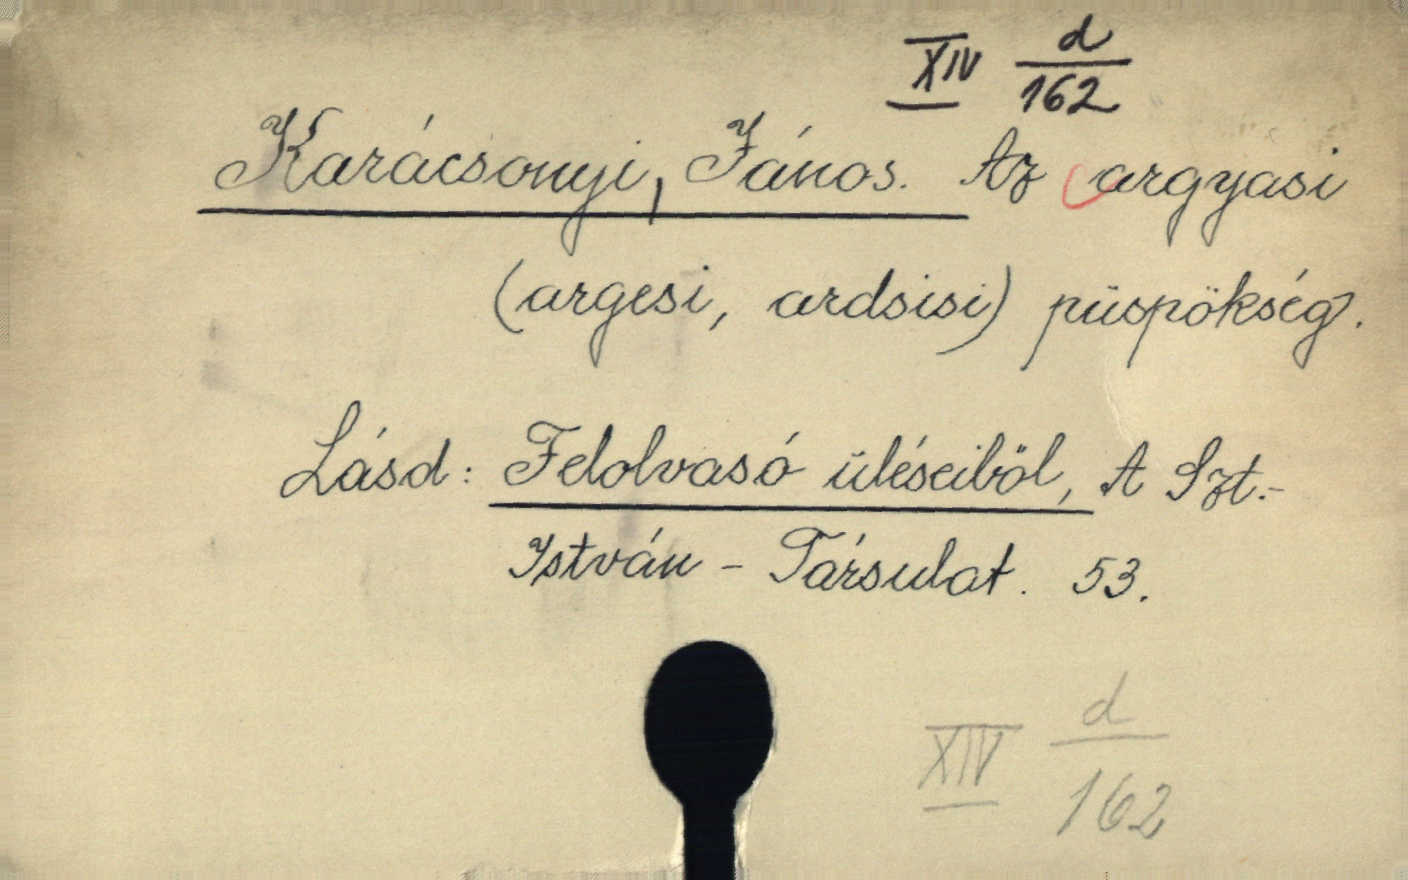 XIV d/162
Karácsonyi, János. Az argyasi
(argesi, ardsisi) püspökség.
Lásd: Felolvasó üléseiböl, A Szt.-
István-Társulat. 53.
XIV d/162